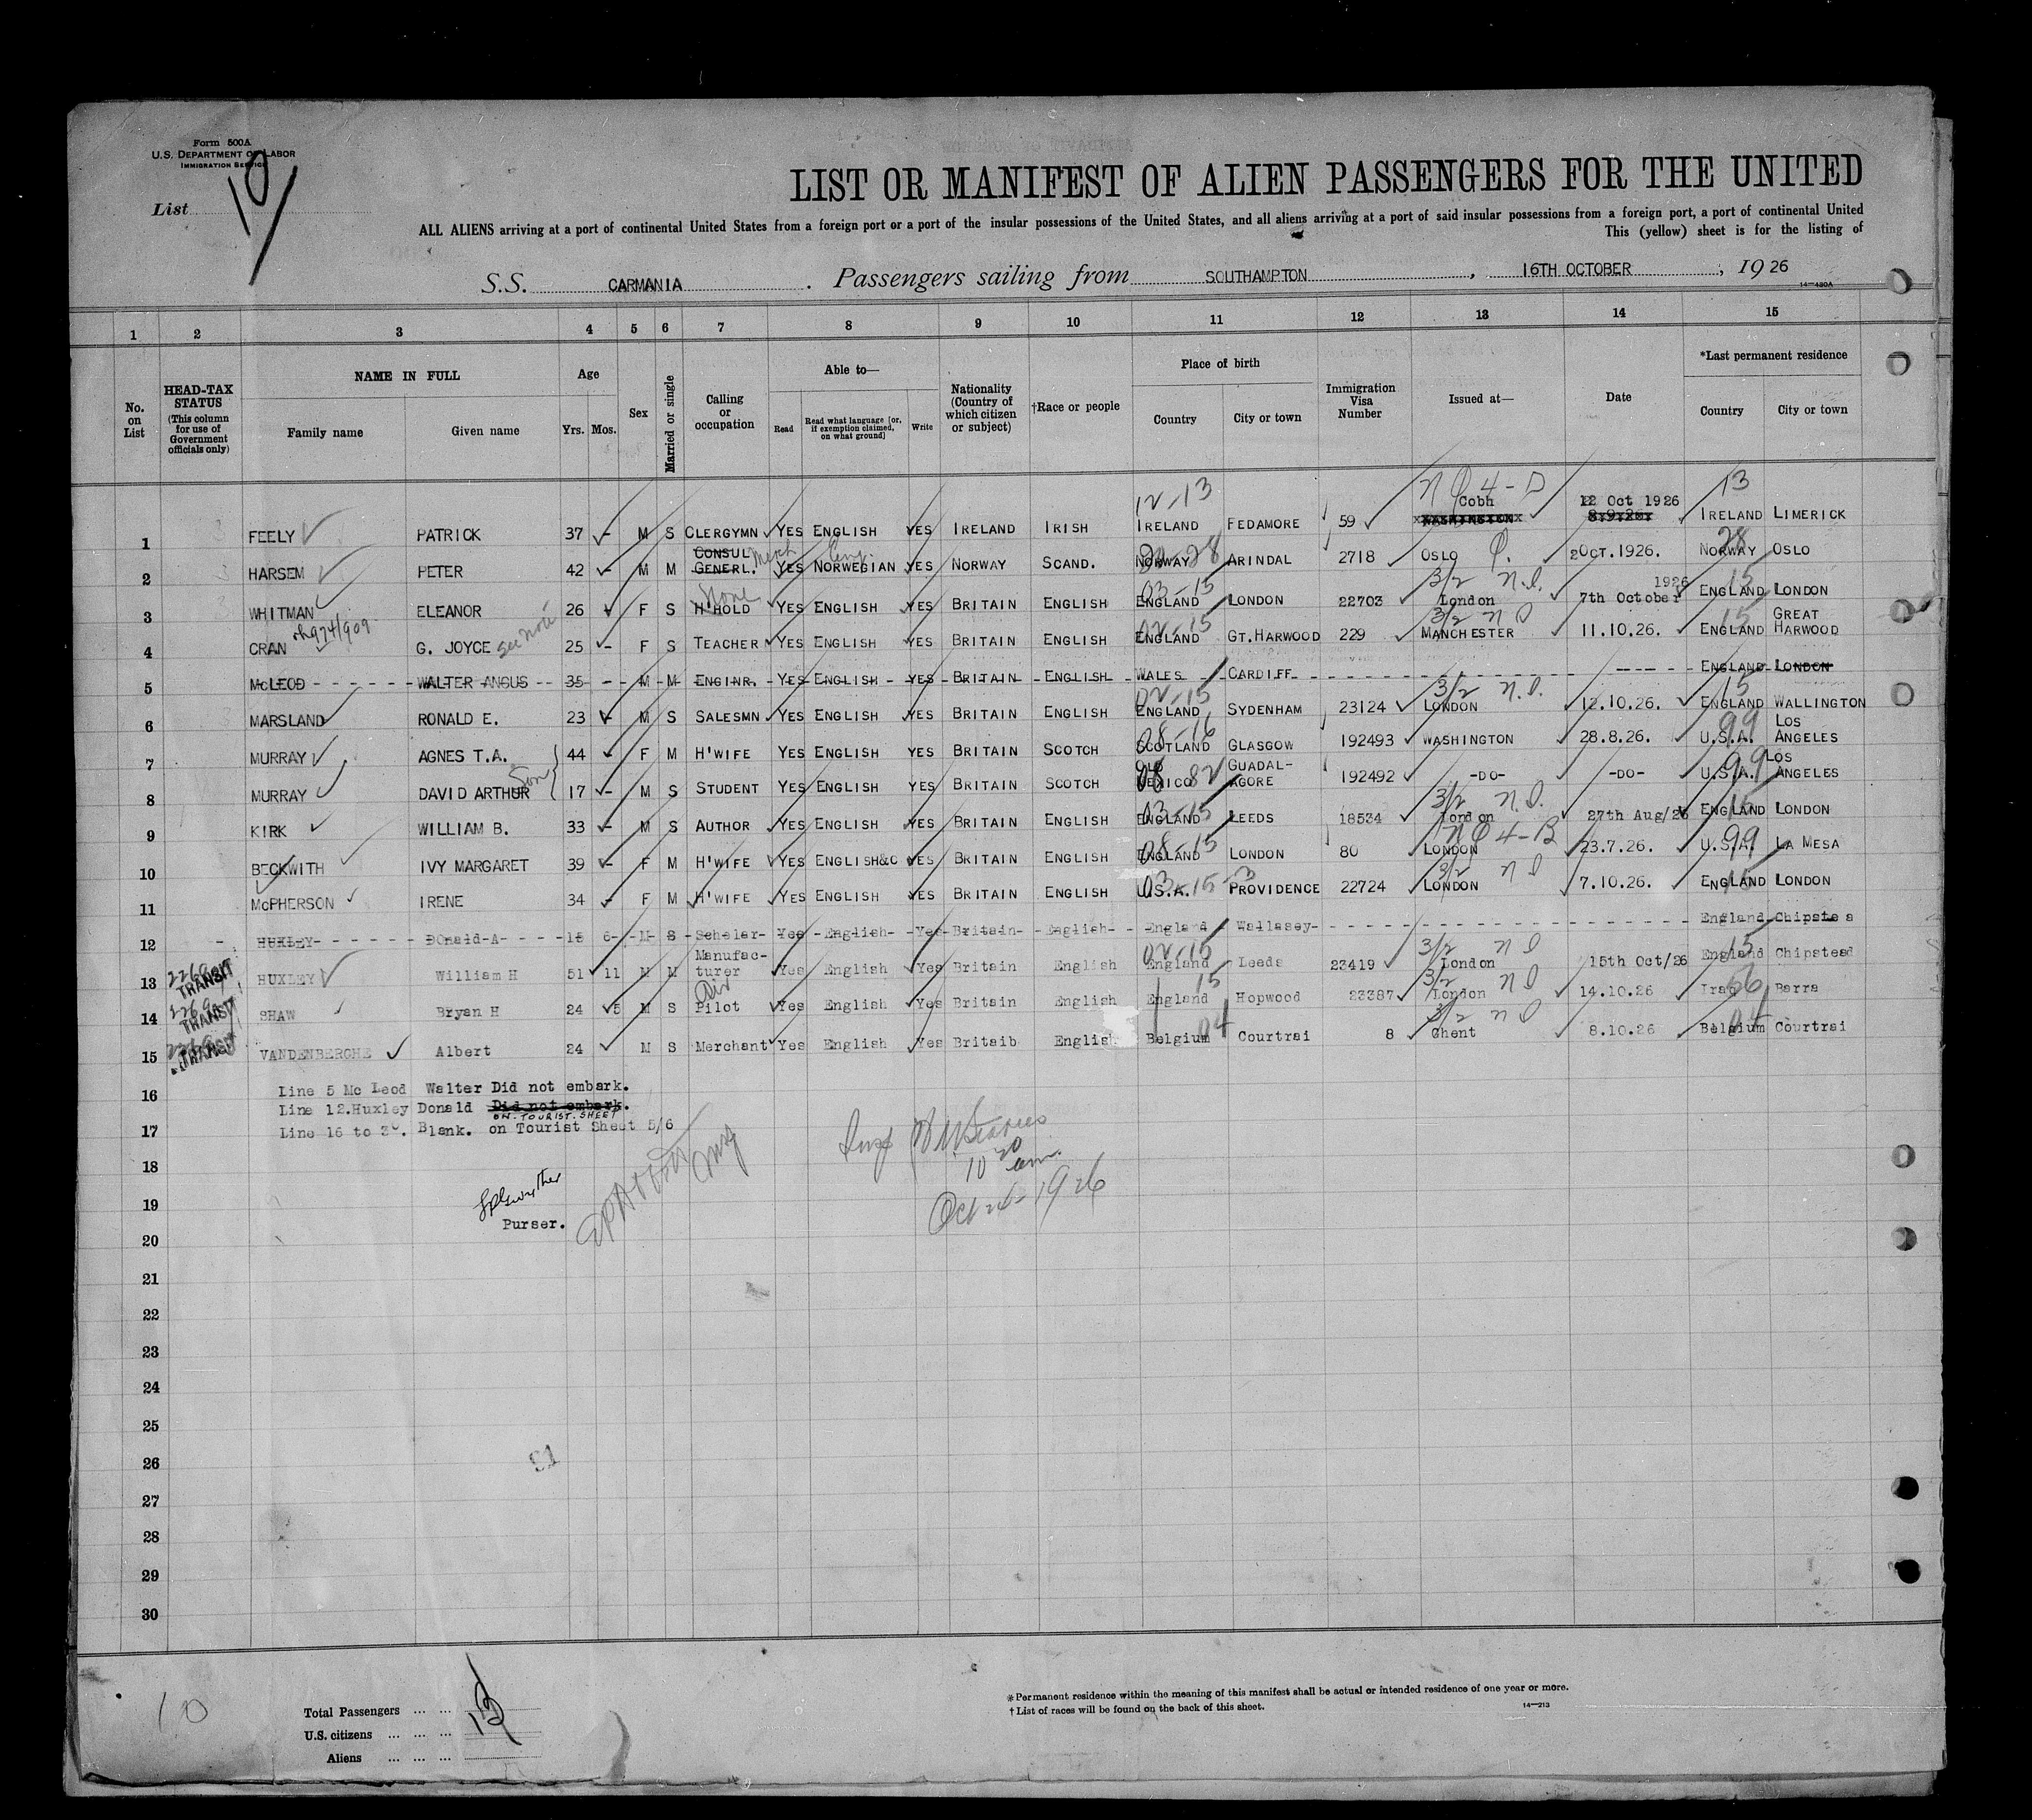 Form 500A
U.S. DEPARTMENT OF LABOR
IMMIGRATION SERVICE
List 10
LIST OR MANIFEST OF ALIEN PASSENGERS FOR THE UNITED
ALL ALIENS arriving at a port of continental United States from a foreign port or a port of the insular possessions of the United States, and all aliens arriving at a port of said insular possessions from a foreign port, a port of continental United
This (yellow) sheet is for the listing of
S.S. CARMANIA. Passengers sailing from SOUTHAMPTON, 16TH OCTOBER, 1926
14—430A
1 2 3 4 5 6 7 8 9 10 11 12 13 14 15
No. on List
HEAD-TAX STATUS (This column for use of Government officials only)
NAME IN FULL
Family name Given name
Age
Yrs. Mos.
Sex
Married or single
Calling or occupation
Able to—
Read Read what language [or, if exemption claimed, on what ground] Write
Nationality (Country of which citizen or subject)
†Race or people
Place of birth
Country City or town
Immigration Visa Number
Issued at—
Date
*Last permanent residence
Country City or town
12-13 NQ 4-D 13
Cobh 12 Oct 1926
1 FEELY PATRICK 37 - M S CLERGYMN YES ENGLISH YES IRELAND IRISH IRELAND FEDAMORE 59 WASHINGTON 8.9.26. IRELAND LIMERICK
CONSUL Merch Eng. 28 28
2 HARSEM PETER 42 - M M GENERL. YES NORWEGIAN YES NORWAY SCAND. NORWAY ARINDAL 2718 OSLO 2OCT.1926. NORWAY OSLO
None 03-15 3/2 N.D. 1926 15
3 WHITMAN ELEANOR 26 F S H'HOLD YES ENGLISH YES BRITAIN ENGLISH ENGLAND LONDON 22703 London 7th October ENGLAND LONDON
02-15 3/2 N D 15 GREAT
4 CRAN G. JOYCE see note 25 - F S TEACHER YES ENGLISH YES BRITAIN ENGLISH ENGLAND GT.HARWOOD 229 MANCHESTER 11.10.26. ENGLAND HARWOOD
5 McLEOD WALTER ANGUS 35 - M M ENGINR. YES ENGLISH YES BRITAIN ENGLISH WALES CARDIFF ---- ENGLAND LONDON
02-15 3/2 N.D. 15
6 MARSLAND RONALD E. 23 - M S SALESMN YES ENGLISH YES BRITAIN ENGLISH ENGLAND SYDENHAM 23124 LONDON 12.10.26. ENGLAND WALLINGTON
08-16 99 LOS
7 MURRAY AGNES T.A. 44 - F M H'WIFE YES ENGLISH YES BRITAIN SCOTCH SCOTLAND GLASGOW 192493 WASHINGTON 28.8.26. U.S.A. ANGELES
Son OLD 08 82 GUADAL- 99 LOS
8 MURRAY DAVID ARTHUR 17 - M S STUDENT YES ENGLISH YES BRITAIN SCOTCH MEXICO AGORE 192492 -DO- -DO- U.S.A. ANGELES
03-15 3/2 N.D. 15
9 KIRK WILLIAM B. 33 - M S AUTHOR YES ENGLISH YES BRITAIN ENGLISH ENGLAND LEEDS 18534 London 27th Aug/26 ENGLAND LONDON
08-15 NQ 4-B 99
10 BECKWITH IVY MARGARET 39 - F M H'WIFE YES ENGLISH&C YES BRITAIN ENGLISH ENGLAND LONDON 80 LONDON 23.7.26. U.S.A. LA MESA
3/2 N D 15
11 McPHERSON IRENE 34 - F M H'WIFE YES ENGLISH YES BRITAIN ENGLISH U.S.A. PROVIDENCE 22724 LONDON 7.10.26. ENGLAND LONDON
12 HUXLEY DOnald A 15 6 M S Scholar Yes English Yes Britain English England Wallasey England Chipstea
Manufac- 02-15 3/2 N D 15
13 TRANSIT HUXLEY William H 51 11 M M turer Yes English Yes Britain English England Leeds 23419 London 15th Oct/26 England Chipstead
Air 15 3/2 N D 66
14 TRANSIT SHAW Bryan H 24 5 M S Pilot Yes English Yes Britain English England Hopwood 23387 London 14.10.26 Iraq Barra
04 3/2 N D 04
15 TRANSIT VANDENBERGHE Albert 24 M S Merchant Yes English Yes Britaib English Belgium Courtrai 8 Ghent 8.10.26 Belgium Courtrai
16 Line 5 Mc Leod Walter Did not embark.
Line 12.Huxley Donald Did not embark.
ON TOURIST SHEET
17 Line 16 to 30. Blank. on Tourist Sheet 5/6
18
10 30 am.
19 Oct 26-1926
Purser.
20
21
22
23
24
25
26
27
28
29
30
10
Total Passengers ... ... 13
U.S. citizens ... ... ...
Aliens ... ... ...
*Permanent residence within the meaning of this manifest shall be actual or intended residence of one year or more.
†List of races will be found on the back of this sheet.
14—213